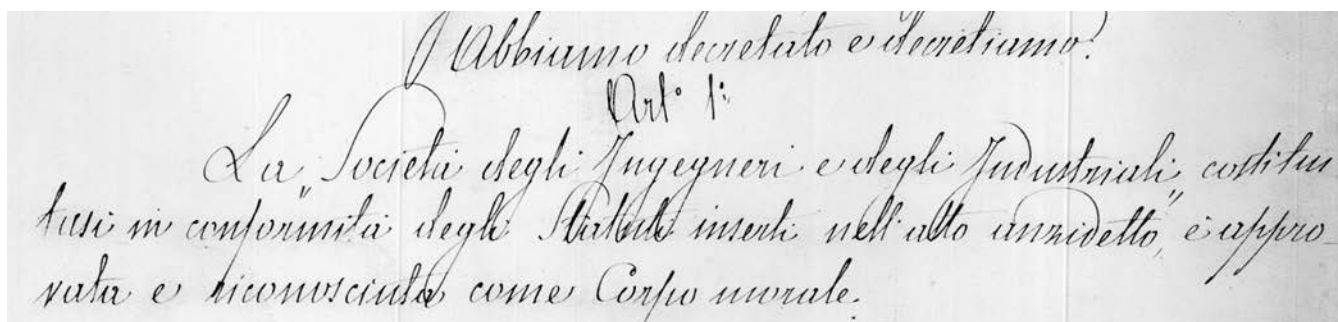 Abbiamo decretato e decretiamo:
Art.° 1.°
La "Società degli Ingegneri e degli Industriali, costitui-
tasi in conformità degli Statuti inserti nell'atto anzidetto," è appro-
vata e riconosciuta come Corpo morale.